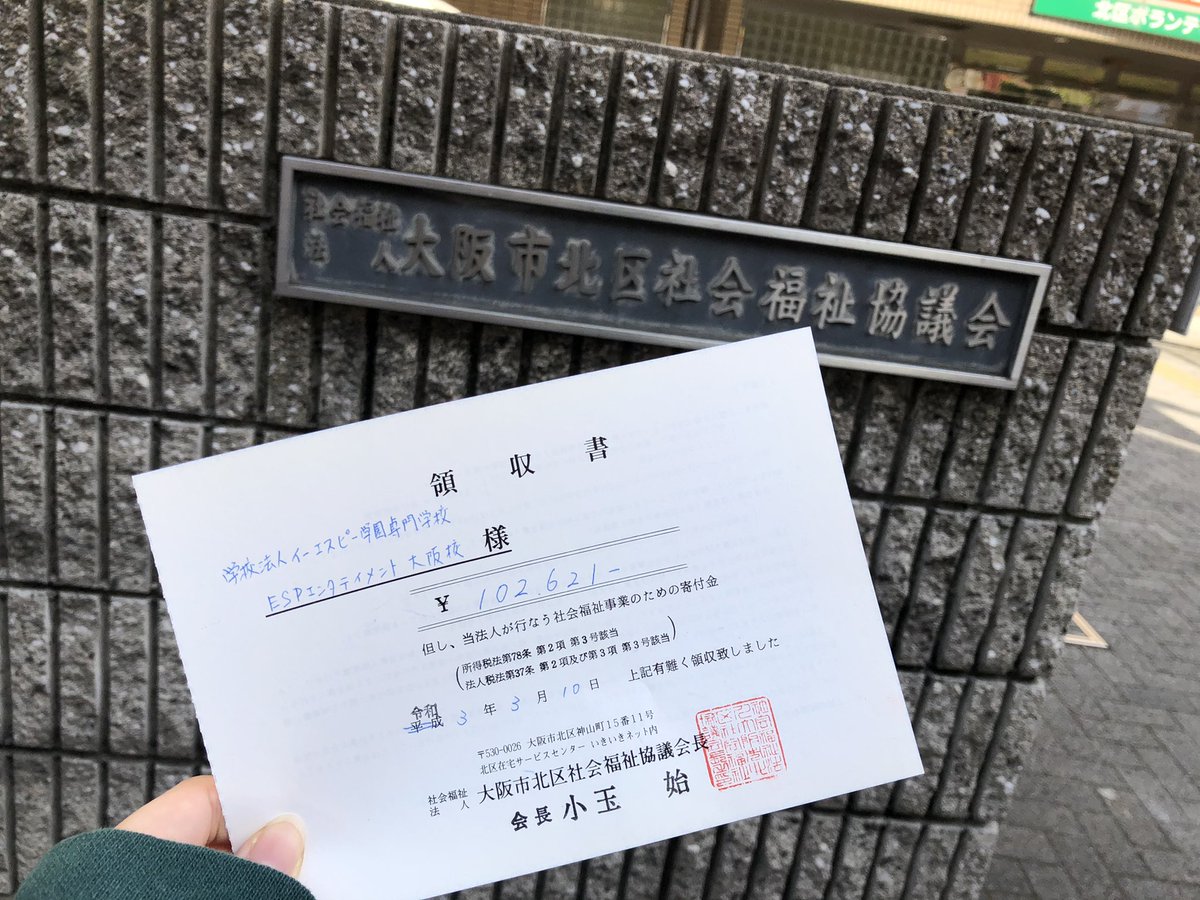 北区ボランテ
社会福祉
法人 大阪市北区社会福祉協議会
領収書
学校法人イーエスピー学園専門学校
ESPエンタテイメント大阪校 様
¥ 102.621-
但し、当法人が行なう社会福祉事業のための寄付金
(所得税法第78条 第2項 第3号該当
法人税法第37条 第2項及び第3項 第3号該当)
令和
平成 3年3月10日 上記有難く領収致しました
〒530-0026 大阪市北区神山町15番11号
北区在宅サービスセンター いきいきネット内
社会福祉
法人 大阪市北区社会福祉協議会長
会長 小玉 始